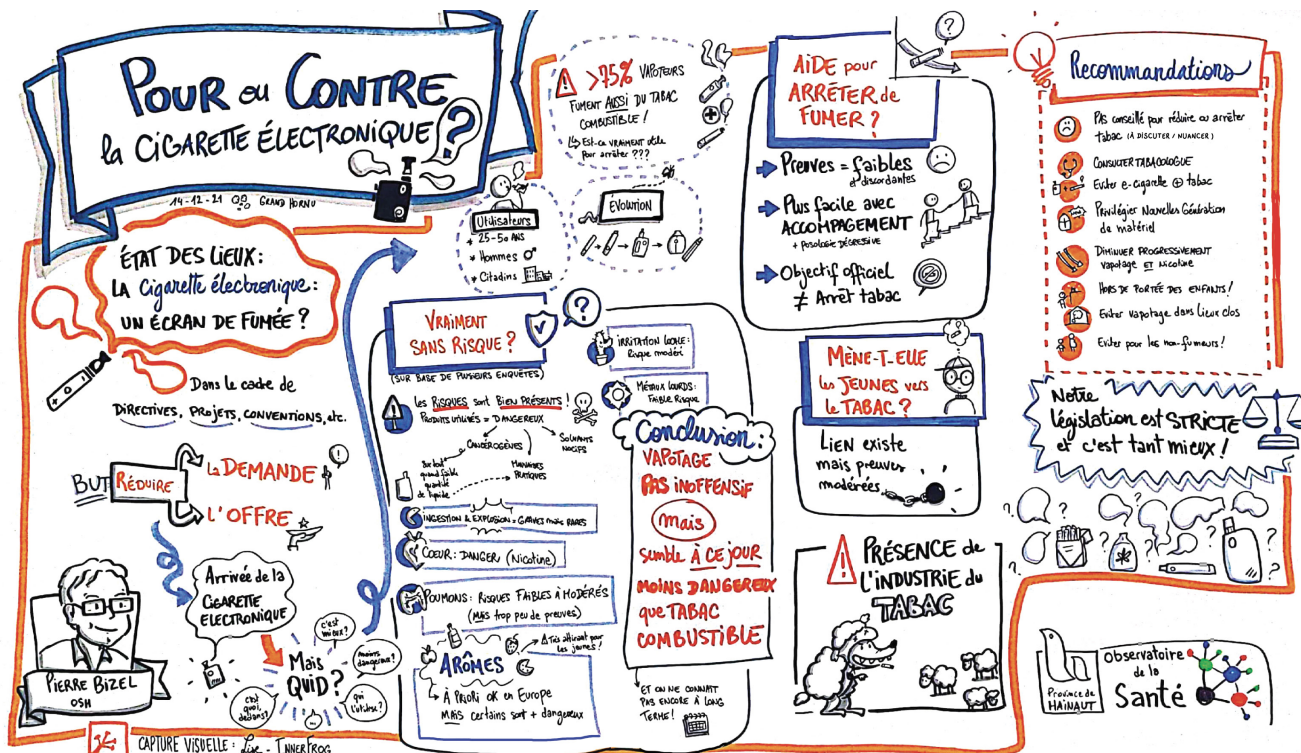 POUR ou CONTRE
la CIGARETTE ÉLECTRONIQUE ?
14-12-21 GRAND HORNU
ÉTAT DES LIEUX :
LA Cigarette électronique :
UN ÉCRAN DE FUMÉE ?
Dans le cadre de
DIRECTIVES, PROJETS, CONVENTIONS, etc.
BUT
RÉDUIRE
la DEMANDE
L'OFFRE
Arrivée de la
CIGARETTE
ELECTRONIQUE
Mais
QUID ?
c'est
mieux ?
moins
dangereux ?
qui
l'utilise ?
...
c'est
quoi
dedans ?
PIERRE BIZEL
OSH
CAPTURE VISUELLE : Lise - INNERFROG
>75% VAPOTEURS
FUMENT AUSSI DU TABAC
COMBUSTIBLE !
Est-ce VRAIMENT utile
pour arrêter ???
Utilisateurs
* 25-50 ANS
* Hommes ♂
* Citadins
ÉVOLUTION
VRAIMENT
SANS RISQUE ?
?
(SUR BASE DE PLUSIEURS ENQUÊTES)
les RISQUES sont BIEN PRÉSENTS !
PRODUITS UTILISÉS = DANGEREUX
CANCÉROGÈNES
SOLVANTS
NOCIFS
Surtout
quand faible
quantité
de liquide
MAUVAISES
PRATIQUES
INGESTION & EXPLOSION = GRAVES mais RARES
COEUR : DANGER (Nicotine)
POUMONS : RISQUES FAIBLES À MODÉRÉS
(MAIS trop peu de preuves)
ARÔMES
Très attirant pour
les jeunes !
À PRIORI OK en Europe
MAIS certains sont + dangereux
IRRITATION LOCALE :
Risque modéré
MÉTAUX LOURDS :
Faible Risque
Conclusion :
VAPOTAGE
PAS INOFFENSIF
mais
semble À CE JOUR
MOINS DANGEREUX
que TABAC
COMBUSTIBLE
ET ON NE CONNAÎT
PAS ENCORE À LONG
TERME !
AIDE pour
ARRÊTER de
FUMER ?
?
Preuves = faibles
et discordantes
Plus facile avec
ACCOMPAGNEMENT
+ POSOLOGIE DÉGRESSIVE
Objectif officiel
≠ Arrêt tabac
MÈNE-T-ELLE
les JEUNES vers
le TABAC ?
LIEN existe
mais preuves
modérées
PRÉSENCE de
L'INDUSTRIE du
TABAC
Recommandations
PAS conseillé pour réduire ou arrêter
tabac (À DISCUTER / NUANCER)
CONSULTER TABACOLOGUE
Eviter e-cigarette ⊕ tabac
Privilégier Nouvelles Génération
de matériel
DIMINUER PROGRESSIVEMENT
vapotage ET Nicotine
HORS DE PORTÉE DES ENFANTS !
Eviter vapotage dans Lieux clos
Eviter pour les non-fumeurs !
Notre
législation est STRICTE
et c'est tant mieux !
? ? ? ? ? ?
Province de
HAINAUT
Observatoire
de la
Santé